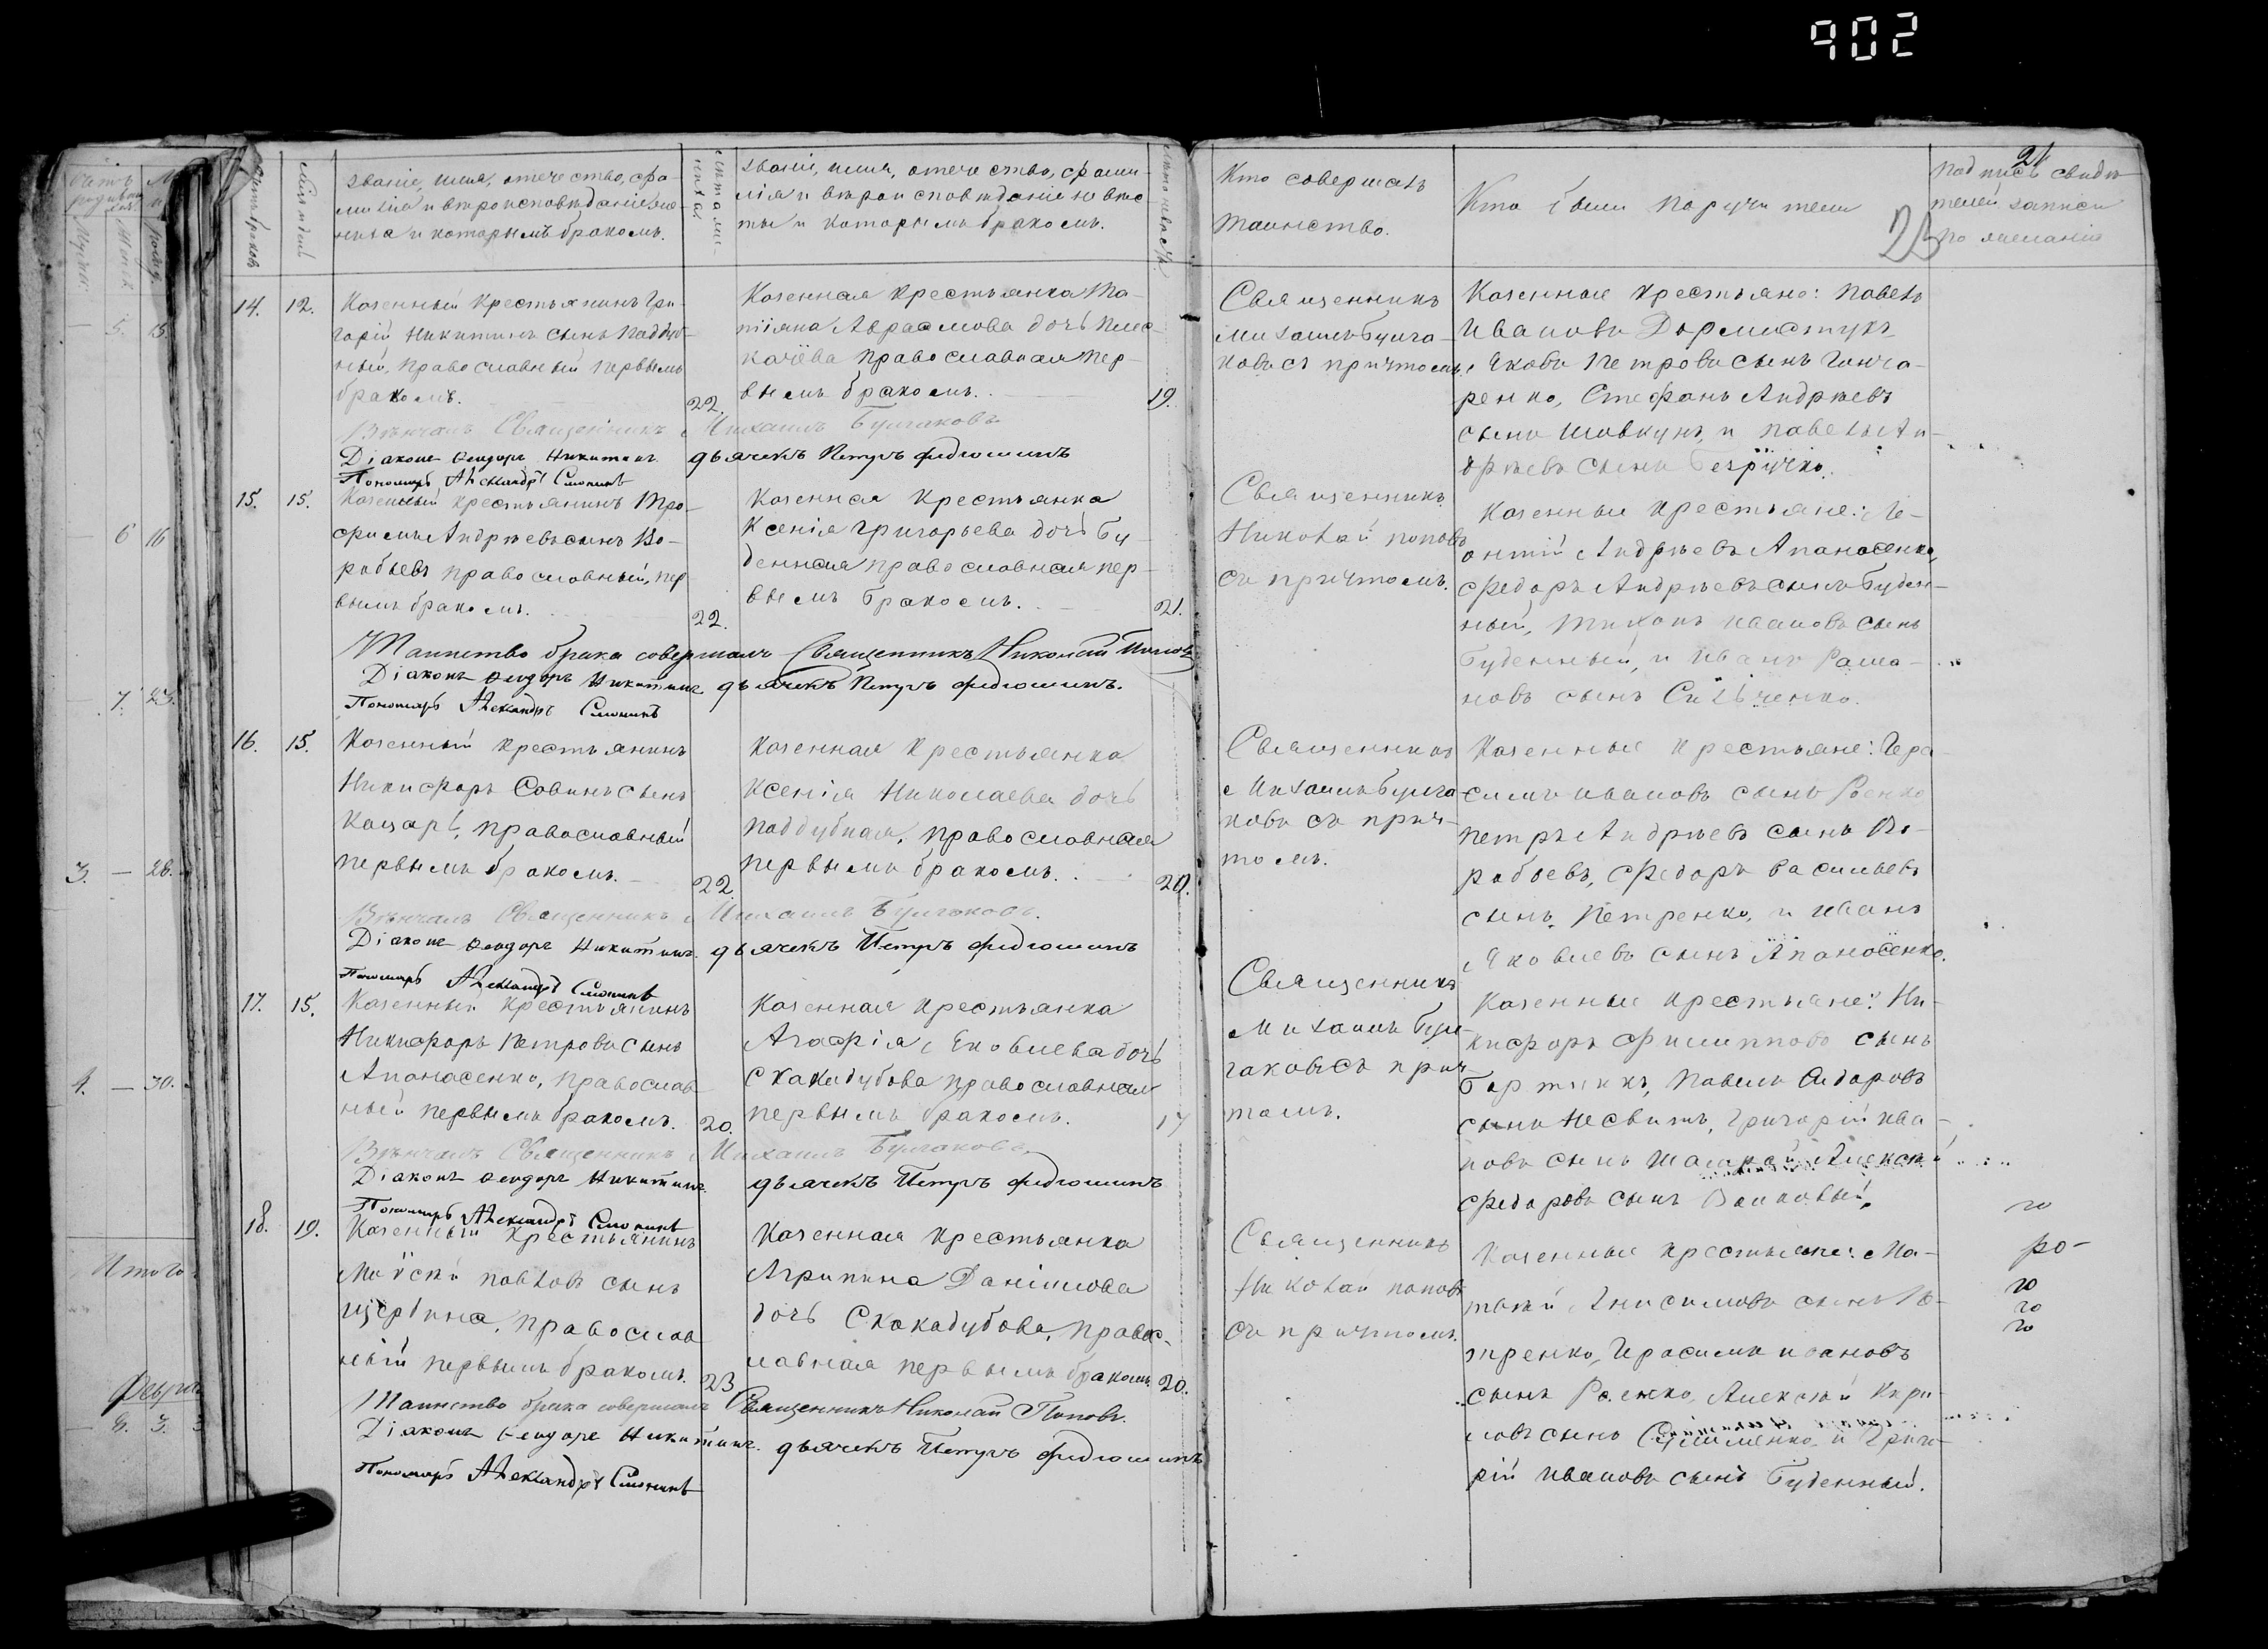 902
21
23
Счетъ браковъ
Мѣсяцъ и день
Званіе, имя, отечество, фа-
милія и вѣроисповѣданіе же-
ниха и которымъ бракомъ.
Лѣта же-
ниха
Званіе, имя, отечество, фами-
лія и вѣроисповѣданіе невѣс-
ты и которымъ бракомъ.
Лѣта невѣсты
Кто совершалъ
таинство.
Кто были поручители
Подпись свидѣ-
телей записи
по желанію
14. 12.
Казенный крестьянинъ Гри-
горій Никитинъ сынъ Поддуб-
ный, православный первымъ
бракомъ. 22.
Казенная крестьянка Та-
тіяна Аврамова дочь
православная пер-
вымъ бракомъ. 19.
Священникъ
Михаилъ Булга-
ковъ съ причтомъ
Казенные крестьяне: Павелъ
Ивановъ
Яковъ Петровъ сынъ Ганча-
ренко, Стефанъ Андреевъ
сынъ Шовкунъ, и Павелъ Ан-
дреевъ сынъ Безручко.
Вѣнчалъ Священникъ Михаилъ Булгаковъ
Діаконъ Ѳеодоръ Никитинъ дьячекъ Петръ Федюшинъ
Пономарь Александръ Слонинъ
15. 15.
Казенный крестьянинъ Тро-
фимъ Андреевъ сынъ Во-
робьевъ православный, пер
вымъ бракомъ. 22.
Казенная крестьянка
Ксенія Григорьева дочь Бу-
денная православная пер-
вымъ бракомъ. 21.
Священникъ
Николай Поповъ
съ причтомъ.
Казенные крестьяне: Ле-
онтій Андреевъ Апанасенко,
Федоръ Андреевъ сынъ Буден-
ный, Тихонъ Ивановъ сынъ
Буденный, и Иванъ Рама-
новъ сынъ Сильченко.
Таинство брака совершалъ Священникъ Николай Поповъ
Діаконъ Ѳеодоръ Никитинъ дьячекъ Петръ Федюшинъ.
Пономарь Александръ Слонинъ
16. 15.
Казенный крестьянинъ
Никифоръ Савинъ сынъ
Кацарь, православный
первымъ бракомъ. 22
Казенная крестьянка
Ксенія Николаева дочь
Поддубная, православная
первымъ бракомъ. 20.
Священникъ
Михаилъ Булга
ковъ съ прич-
томъ.
Казенные крестьяне: Гера-
симъ Ивановъ сынъ Раенко
Петръ Андреевъ сынъ Во-
робьевъ, Федоръ Васильевъ
сынъ Петренко, и Иванъ
Яковлевъ сынъ Апанасенко.
Вѣнчалъ Священникъ Михаилъ Булгаковъ.
Діаконъ Ѳеодоръ Никитинъ. дьячекъ Петръ Федюшинъ
Пономарь Александръ Слонинъ
17. 15.
Казенный крестьянинъ
Никифоръ Петровъ сынъ
Апанасенко, православ-
ный первымъ бракомъ. 20.
Казенная крестьянка
Агафія Яковлева дочь
Скакадубова православная
первымъ бракомъ. 17
Священникъ
Михаилъ Бул-
гаковъ съ прич-
томъ.
Казенные крестьяне: Ни-
кифоръ Филипповъ сынъ
Бортникъ, Павелъ Сидоровъ
сынъ Несвитъ, Григорій Ива-
новъ сынъ Алексѣй
Федоровъ сынъ Волковый.
Вѣнчалъ Священникъ Михаилъ Булгаковъ.
Діаконъ Ѳеодоръ Никитинъ. дьячекъ Петръ Федюшинъ
Пономарь Александръ Слонинъ
18. 19.
Казенный крестьянинъ
Моѵсей Павловъ сынъ
Щербина, православ
ный первымъ бракомъ. 23
Казенная крестьянка
Агрипина Данилова
дочь Скакадубова, правос-
лавная первымъ бракомъ 20.
Священникъ
Николай Поповъ
съ причтомъ.
Казенные крестьяне: Ма-
твей Анисимовъ сынъ Пе-
тренко, Герасимъ Ивановъ
сынъ Раенко, Алексѣй Кири-
ловъ сынъ и Григо-
рій Ивановъ сынъ Буденный.
Таинство брака совершалъ Священникъ Николай Поповъ.
Діаконъ Ѳеодоръ Никитинъ. дьячекъ Петръ Федюшинъ
Пономарь Александръ Слонинъ
Итого